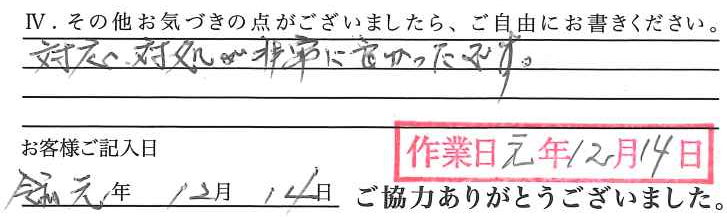 Ⅳ．その他お気づきの点がございましたら、ご自由にお書きください。
対応、対処が非常に良かったです。
お客様ご記入日
作業日元年12月14日
令和元年 12月 14日 ご協力ありがとうございました。